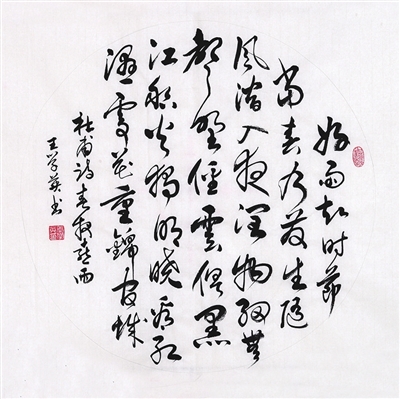 好雨知时節
当春乃发生随
风潜入夜润物细無
聲野徑雲俱黑
江船火獨明曉看红
濕處花重錦官城
杜甫诗春夜喜雨
王学英书